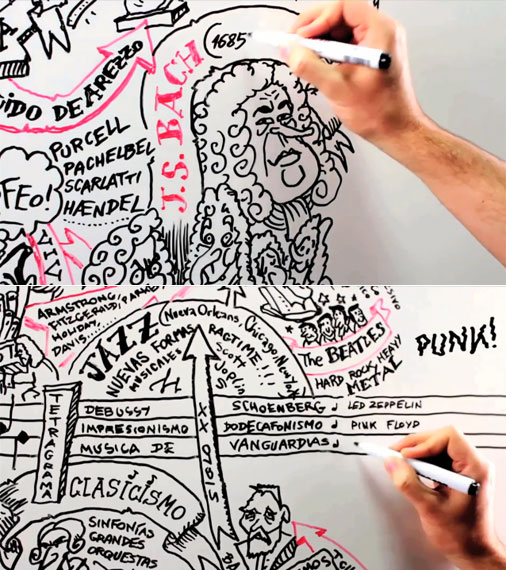 GUIDO DE AREZZO
J.S. BACH
1685
PURCELL
PACHELBEL
SCARLATTI
HÆNDEL
FEO!
VIV
ARMSTRONG,
FITZGERALD,
HOLIDAY,
DAVIS
JAZZ
NUEVAS FORMAS
MUSICALES
Nueva Orleans, Chicago, New York
RAGTIME!!!
SCOTT
JOPLIN
THE BEATLES
HARD ROCK, HEAVY
METAL
PUNK!
TETRAGRAMA
DEBUSSY
IMPRESIONISMO
MUSICA DE
SIGLO XX
SCHOENBERG
DODECAFONISMO
VANGUARDIAS
LED ZEPPELIN
PINK FLOYD
CLASICISMO
SINFONÍAS
GRANDES
ORQUESTAS